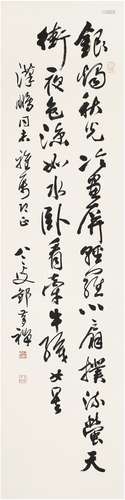 銀燭秋光冷畫屏輕羅小扇撲流螢天
街夜色涼如水卧看牽牛織女星
漢鵬同志雅屬即正
八三叟